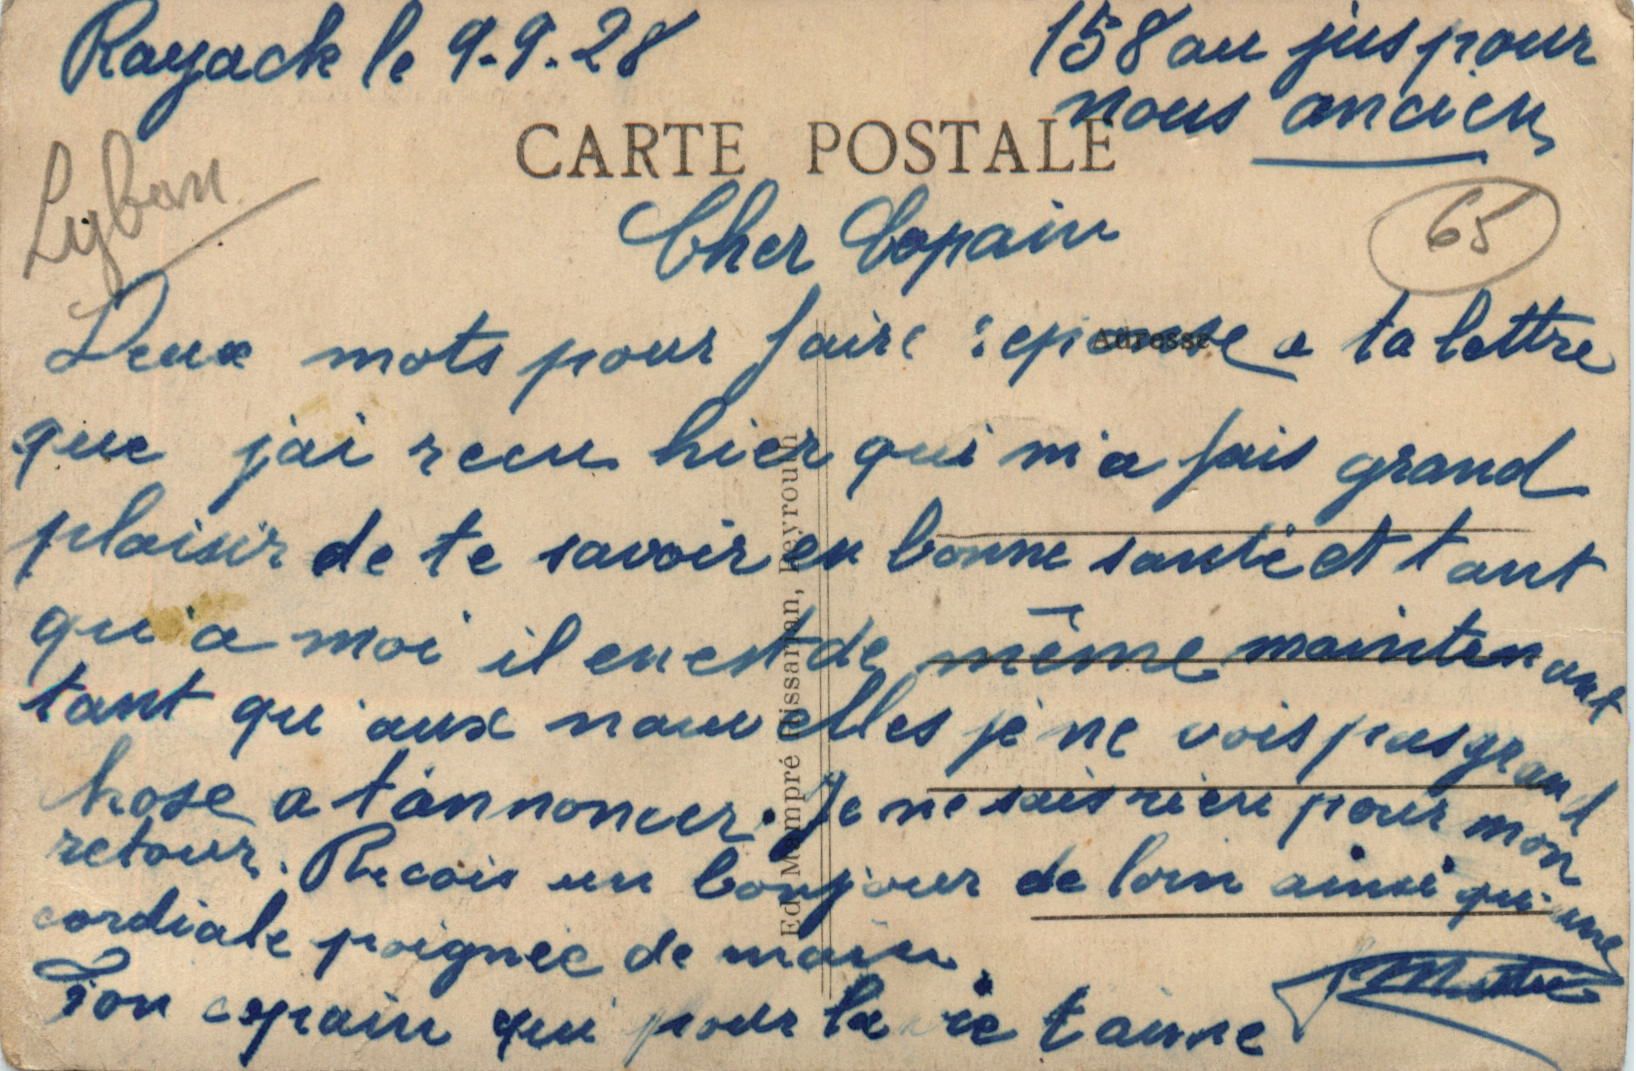 Rayack le 9.9.28
158 au jus pour
nous ancien
CARTE POSTALE
Lyban
65
Cher Copain
Adresse
Deux mots pour faire reponse a ta lettre
que j'ai recu hier qui m'a fais grand
plaisir de te savoir en bonne santé et tant
qu'a moi il en est de même maintenant
tant qu'aux nouvelles je ne vois pas grand
chose a t'annoncer. Je ne sais rien pour mon
retour. Recois un bonjour de loin ainsi qu'une
cordiale poignée de main.
Ton copain qui pour la vie t'aime
Edit. Mampré Missirlian, Beyrouth